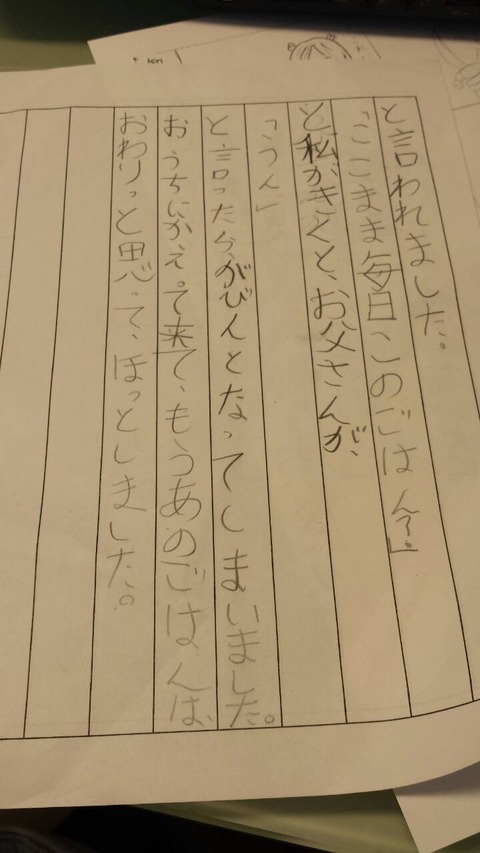 と言われました。
「ここまま毎日このごはん?。」
と私がきくと、お父さんが、
「うん」
と言ったら、がびんとなってしまいました。
おうちにかえって来て、もうあのごはんは、
おわりっと思って、ほっとしました。